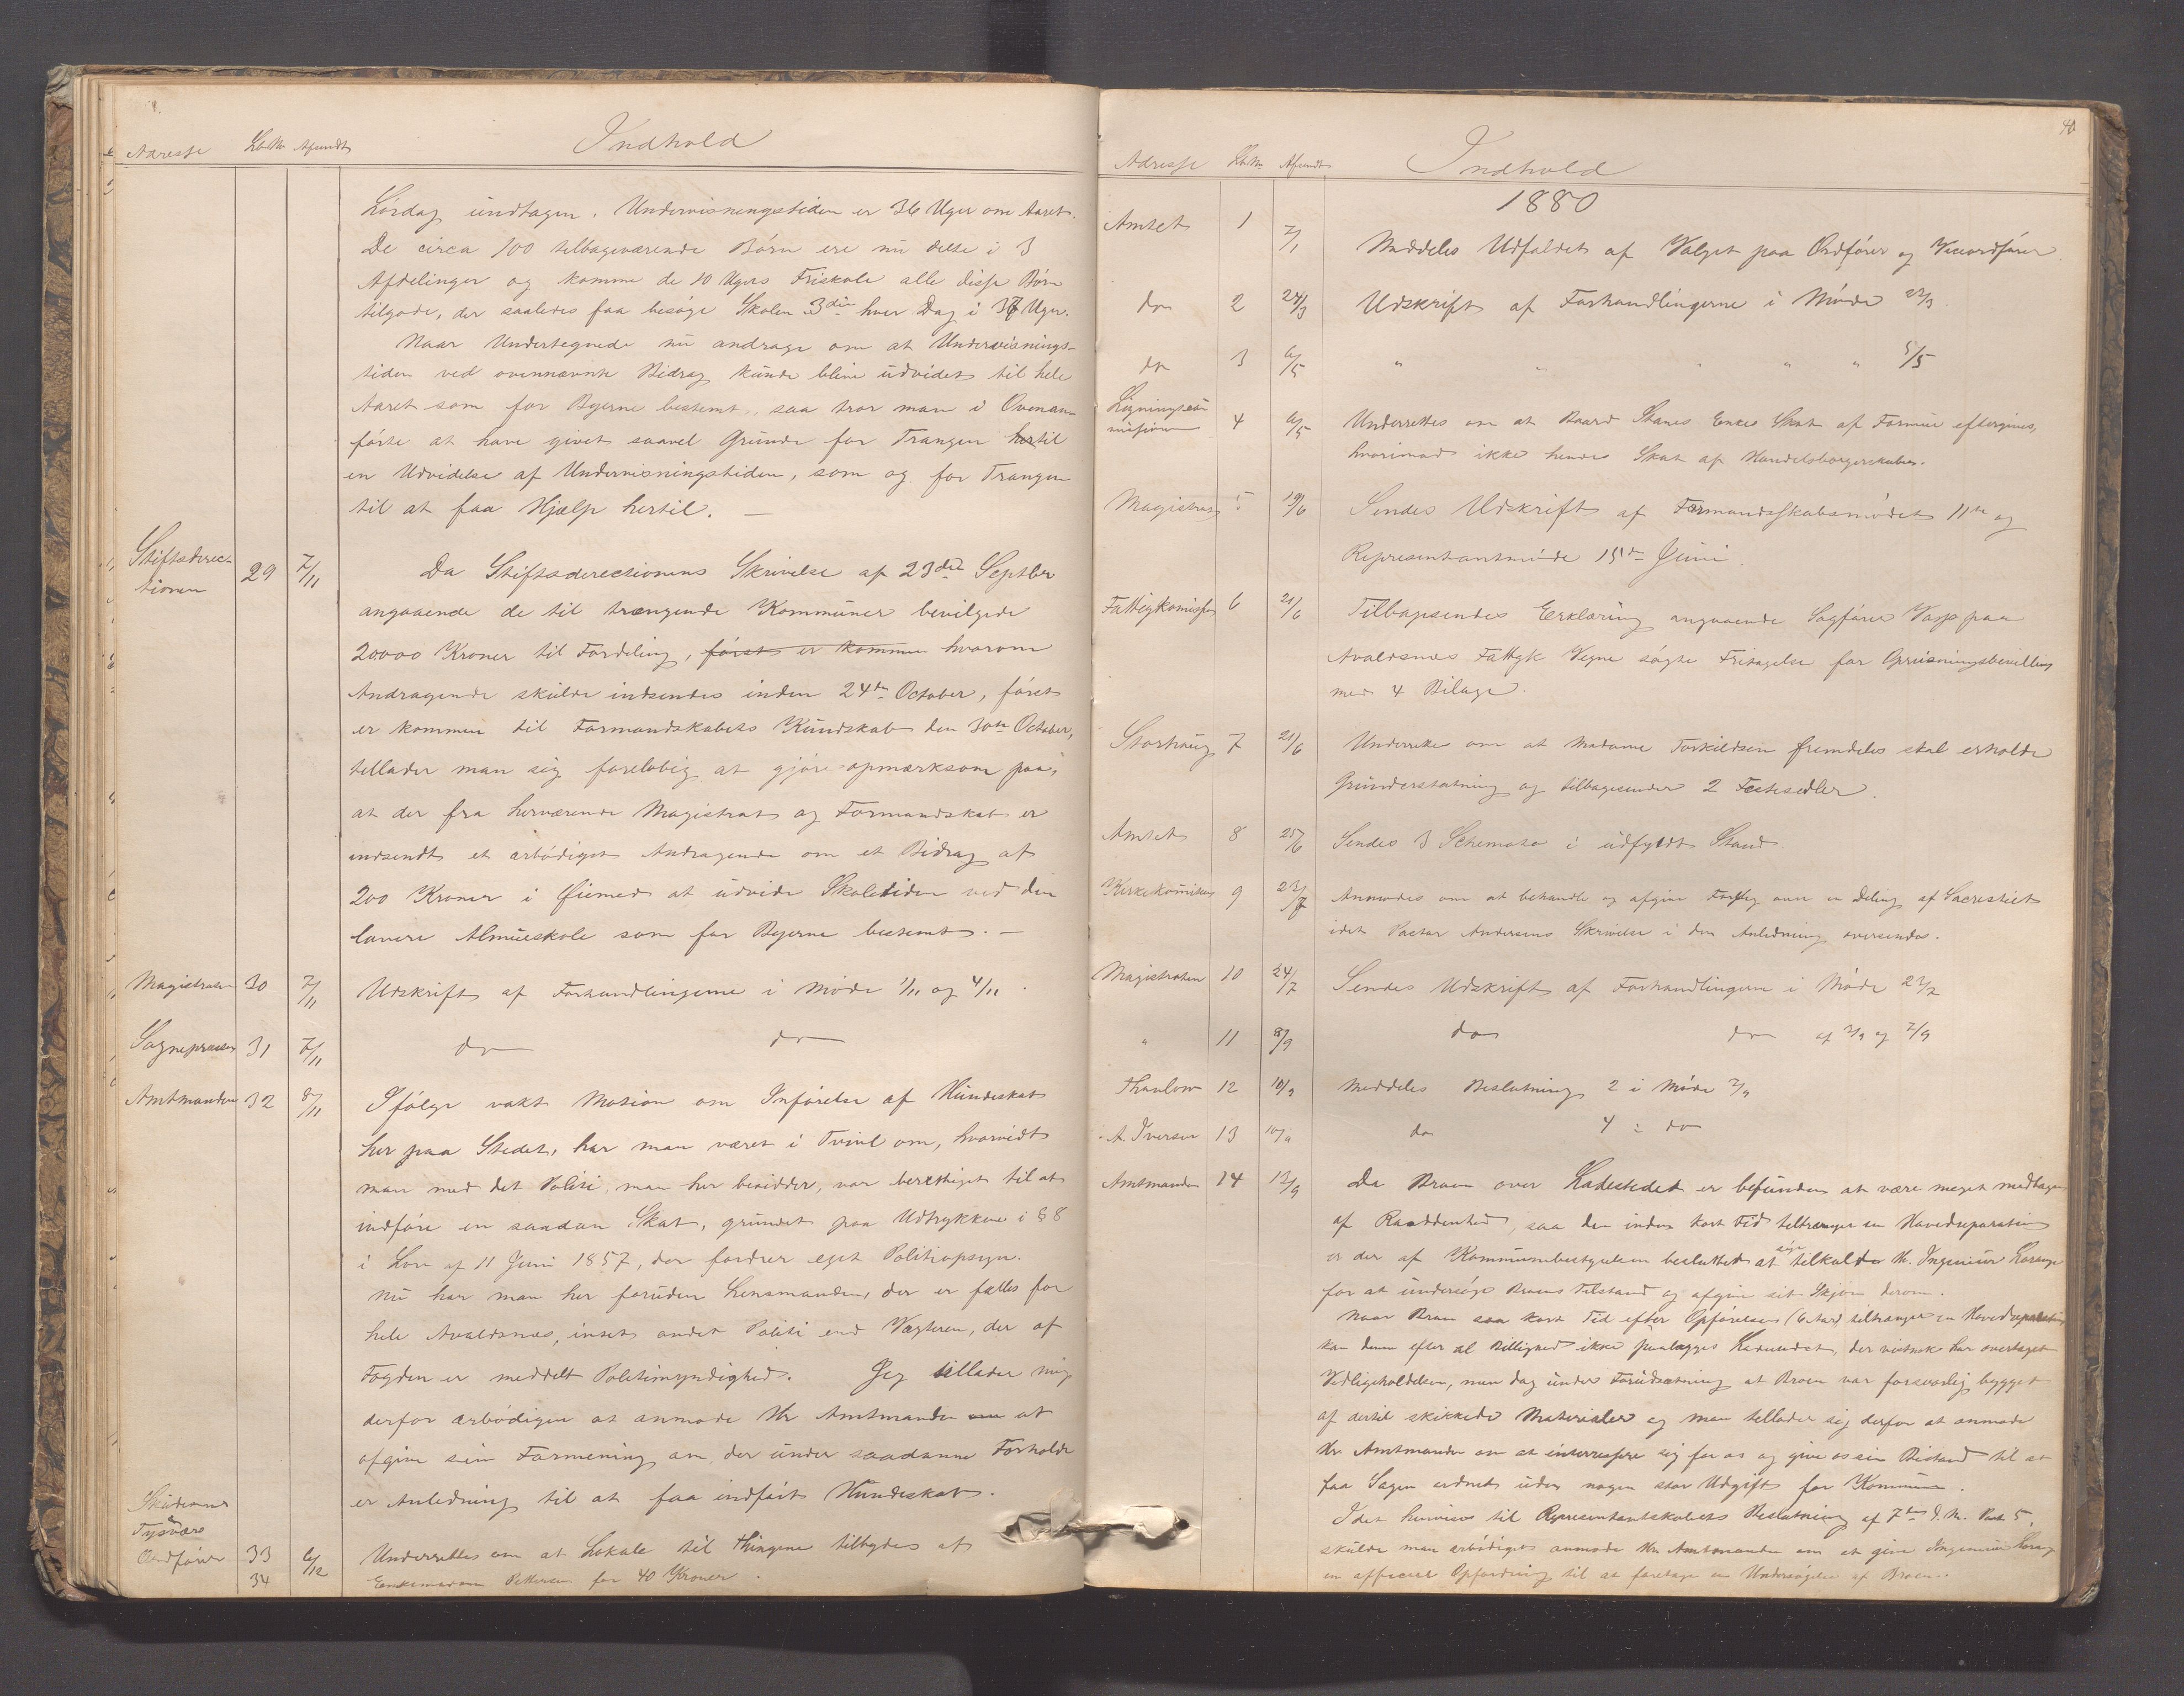 Adresse LbNo Afsendt Indhold
Lördag undtagen. Undervisningstiden er 36 Uger om Aaret.
De circa 100 tilbageværende Börn ere nu delte i 3
Afdelinger og komme de 10 Ugers Friskole alle disse Börn
tilgode, der saaledes faa besöge Skolen 3die hver Dag i 37 Uger.
Naar Undertegnede nu andrage om at Undervisnings-
tiden ved ovennævnte Bidrag kunde blive udvidet til hele
Aaret som for Byerne bestemt, saa tror man i Ovenan-
förte at have givet saavel Grunde for Trangen hertil
en Udvidelse af Undervisningstiden, som og for Trangen
til at faa Hjælp hertil. —
Stiftsdirec-
tionen 29 7/11 Da Stiftsdirectionens Skrivelse af 23de Septbr
angaaende de til trængende Kommuner bevilgede
20000 Kroner til Fordeling, först er kommen hvorom
Andragende skulde indsendes inden 24de October, först
er kommen til Formandskabets Kundskab den 30te October,
tillader man sig foreløbig at gjøre opmærksom paa,
at der fra herværende Magistrat og Formandskab er
indsendt et ærbödigst Andragende om et Bidrag af
200 Kroner i Øiemed at udvide Skoletiden ved den
lavere Almueskole som for Byerne bestemt. —
Magistraten 30 7/11 Udskrift af Forhandlingerne i Möde 1/11 og 4/11.
Sognepræsten 31 7/11 do do
Amtmanden 32 8/11 Ifölge vakt Motion om Införelse af Hundeskat
her paa Stedet, har man været i Tvivl om, hvorvidt
man med det Politi, man her besidder, var berettiget til at
indföre en saadan Skat, grundet paa Udtrykkene i § 8
i Lov af 11 Juni 1857, der fordrer eget Politiopsyn.
Nu har man her foruden Lensmanden, der er fælles for
hele Avaldsnes, intet andet Politi end Vægteren, der af
Fogden er meddelt Politimyndighed. Jeg tillader mig
derfor ærbödigst at anmode Hr Amtmanden om at
afgive sin Formening om der under saadanne Forholde
er Anledning til at faa indfört Hundeskat.
Skudesnes
Tysvær
Ordförer 33 6/12 Underrettes om at Lokale til Thingene tilbydes af
34 Enkemadam Pettersen for 40 Kroner.
40
Adresse LbNo Afsendt Indhold
1880
Amtet 1 7/1 Meddeles Udfaldet af Valget paa Ordförer og Viceordförer
do 2 24/3 Udskrift af Forhandlingerne i Möde 22/3
do 3 6/5 " " " " " 5/5
Ligningscom
missionen 4 6/5 Underrettes om at Baard Stanes Enkes Skat af Formue eftergives,
hvorimod ikke hendes Skat af Handelsborgerskabet.
Magistrat 5 19/6 Sendes Udskrift af Formandskabsmödet 11te og
Representantmöde 15de Juni
Fattigkomissjon 6 21/6 Tilbagesendes Erklæring angaaende Sagförer Vasp paa
Avaldsnes Fattigk Vegne sögte Fritagelse for Opreisningsbevilling
med 4 Bilage.
Storhaug 7 21/6 Underrettes om at Madame Torkildsen fremdeles skal erholde
Grunderstatning og tilbagesender 2 Festesedler.
Amtet 8 25/6 Sendes 3 Schemata i udfyldt Stand.
Kirkekomiteen 9 23/7 Anmodes om at behandle og afgive Forslag om en Deling af Sacrestiet
idet Pastor Andersens Skrivelse i den Anledning oversendes.
Magistraten 10 24/7 Sendes Udskrift af Forhandlingerne i Möde 22/7
" 11 8/9 do do af 2/9 og 7/9
Thaulow 12 10/9 Meddeles Beslutning 2 i Möde 7/9
A. Iversen 13 10/9 do 4 i do
Amtmanden 14 12/9 Da Broen over Ladestedet er befunden at være meget medtagen
af Raaddenhed, saa den inden kort Tid tiltrænger en Hovedreparation
er der af Kommunebestyrelsen besluttet at söge tilkaldt Hr. Ingeniør Lorange
for at undersöge Broens Tilstand og afgive sit Skjøn derom.
Naar Broen saa kort Tid efter Opförelsen (6 Aar) tiltrænger en Hovedreparation
kan denne efter al Billighed ikke paalægges Ladestedet, der vistnok har overtaget
Vedligeholdelsen, men dog under Forudsætning at Broen var forsvarlig bygget
af dertil skikkede Materialer og man tillader sig derfor at anmode
Hr. Amtmanden om at interressere sig for os og give os sin Bistand til at
faa Sagen ordnet uden nogen stor Udgift for Kommunen.
Idet henvises til Representantskabets Beslutning af 7de d. M. Post 5,
skulde man ærbödigst anmode Hr. Amtmanden om at give Ingeniør Lorange
en officiel Opfordring til at foretage en Undersögelse af Broen.